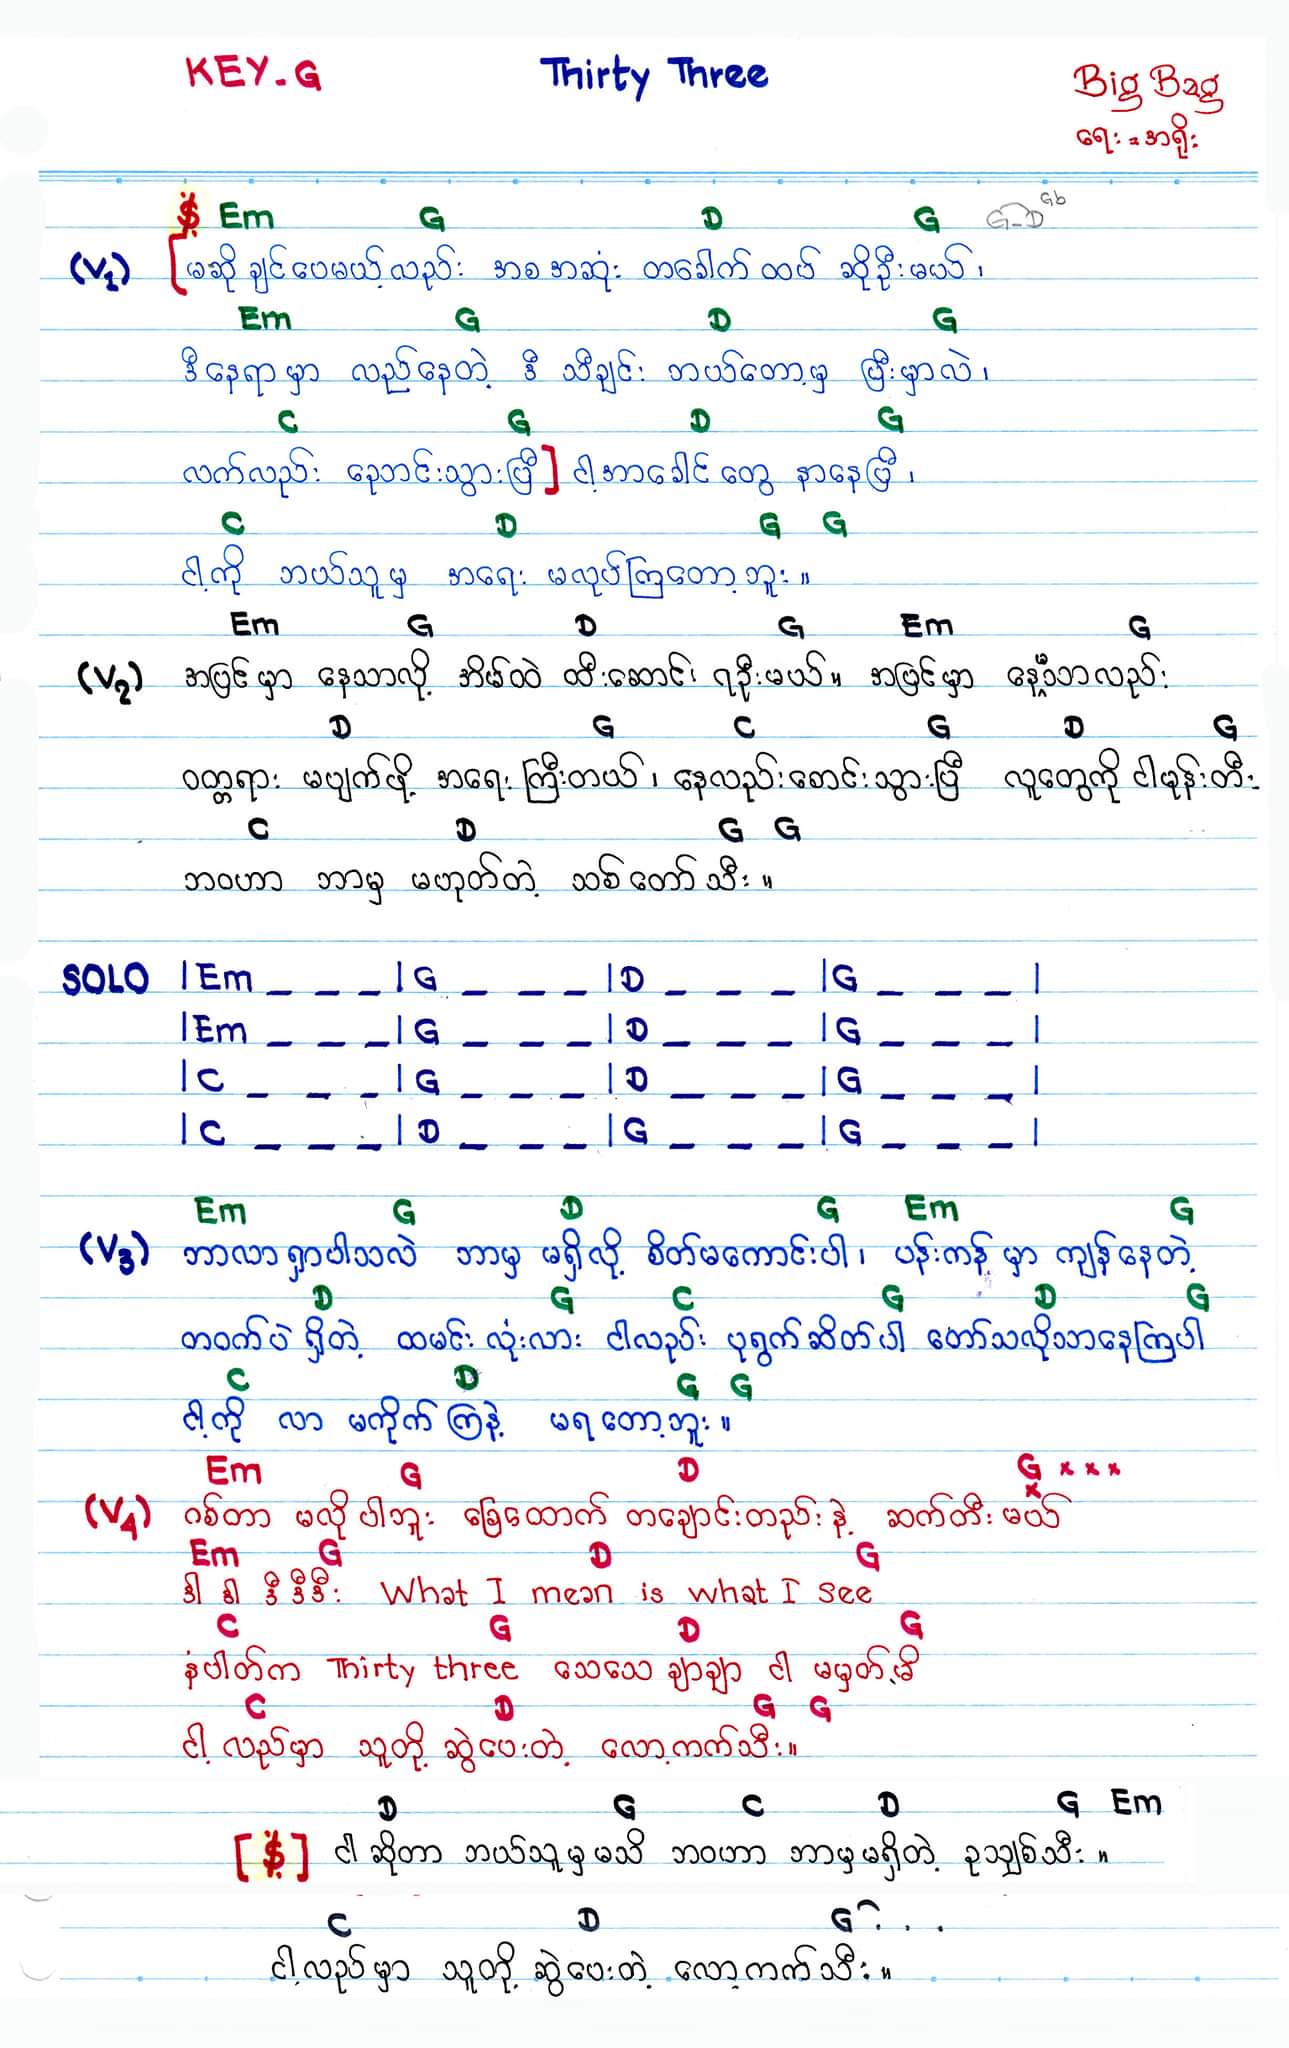 KEY-G Thirty Three Big Bag
ရေး = အရိုး
𝄋 Em G D G G D Gb
(V1) [မဆိုချင်ပေမယ့်လည်း အစအဆုံး တခေါက်ထပ် ဆိုဦးမယ်၊
Em G D G
ဒီနေရာမှာ လည်နေတဲ့ ဒီ သီချင်း ဘယ်တော့မှ ပြီးမှာလဲ၊
C G D G
လက်လည်း ညောင်းသွားပြီ] ငါ့အာခေါင်တွေ နာနေပြီ၊
C D G G
ငါ့ကို ဘယ်သူမှ အရေး မလုပ်ကြတော့ဘူး။
Em G D G Em G
(V2) အပြင်မှာ နေသာလို့ အိမ်ထဲ ထီးဆောင်း ရဦးမယ်။ အပြင်မှာ လည်း
D G C G D G
ဝတ္တရား မပျက်ဖို့ အရေးကြီးတယ်၊ နေလည်းစောင်းသွားပြီ လူတွေကို ငါမုန်းတီး
C D G G
ဘဝဟာ ဘာမှ မဟုတ်တဲ့ သစ်တော်သီး။
SOLO |Em _ _ _ |G _ _ _ |D _ _ _ |G _ _ _ |
|Em _ _ _ |G _ _ _ |D _ _ _ |G _ _ _ |
|C _ _ _ |G _ _ _ |D _ _ _ |G _ _ _ |
|C _ _ _ |D _ _ _ |G _ _ _ |G _ _ _ |
Em G D G Em G
(V3) ဘာလာရှာပါသလဲ ဘာမှ မရှိလို့ စိတ်မကောင်းပါ၊ ပန်းကန်မှာ ကျန်နေတဲ့
D G C G D G
တဝက်ပဲ ရှိတဲ့ ထမင်းလုံးလား ငါလည်း ပုရွက်ဆိတ်ပါ တော်သလိုသာနေကြပါ
C D G G
ငါ့ကို လာ မကိုက်ကြနဲ့ မရတော့ဘူး။
Em G D G x x x x
(V4) ဂစ်တာ မလိုပါဘူး ခြေထောက် တချောင်းတည်းနဲ့ ဆက်တီးမယ်
Em G D G
ဒါ ဒါ ဒီ ဒီဒီး What I mean is what I see
C G D G
နံပါတ်က Thirty three သေသေချာချာ ငါ မမှတ်မိ
C D G G
ငါ့ လည်မှာ သူတို့ ဆွဲပေးတဲ့ လော့ကက်သီး။
D G C D G Em
[𝄋] ငါဆိုတာ ဘယ်သူမှမသိ ဘဝဟာ ဘာမှမရှိတဲ့ ခုသျှစ်သီး။
C D G . . .
ငါ့လည်မှာ သူတို့ ဆွဲပေးတဲ့ လော့ကက်သီး။